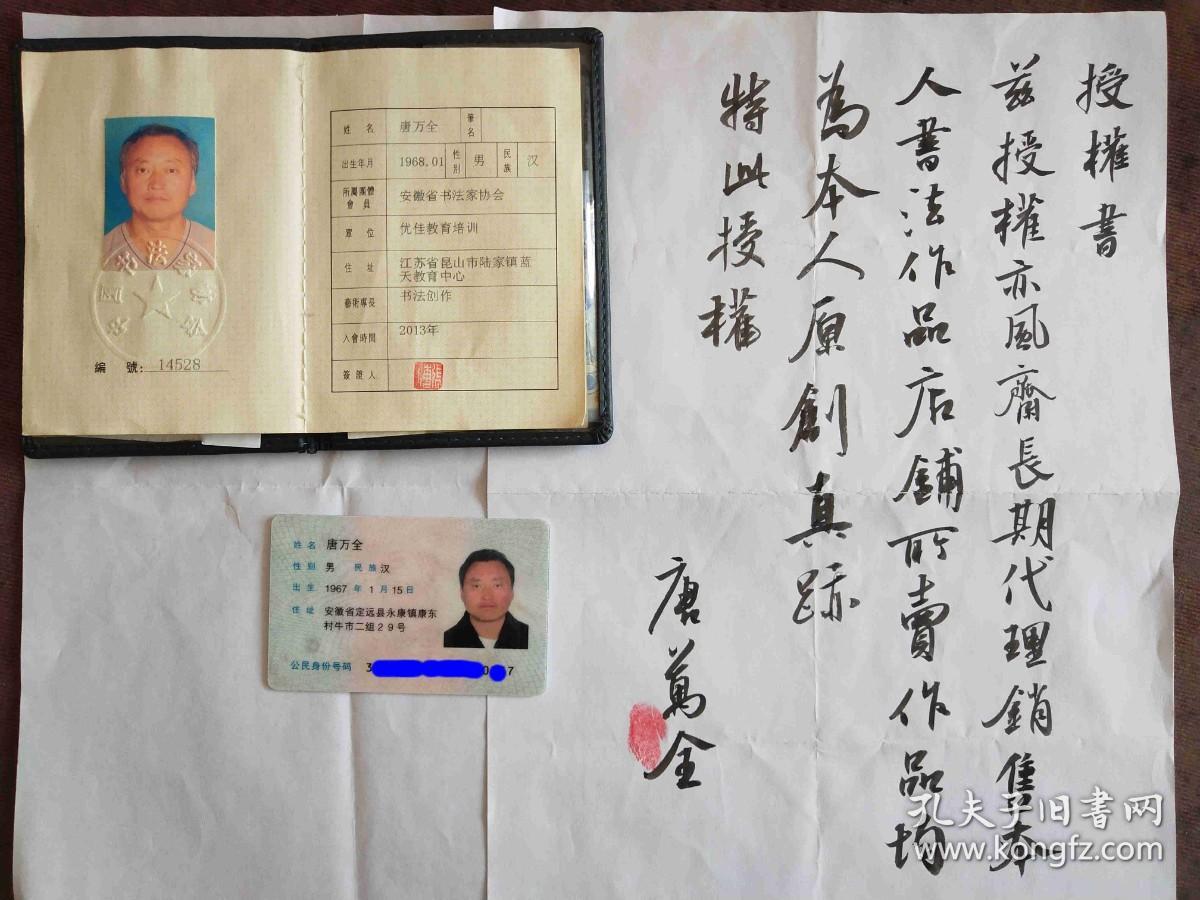 姓 名 唐万全 筆名
出生年月 1968.01 性別 男 民族 汉
所屬團體會員 安徽省书法家协会
單 位 优佳教育培训
住 址 江苏省昆山市陆家镇蓝
天教育中心
藝術專長 书法创作
入會時間 2013年
簽證人
編 號: 14528
姓 名 唐万全
性 别 男 民 族 汉
出 生 1967 年 1 月 15 日
住 址 安徽省定远县永康镇康东
村牛市二组29号
公民身份号码 3 0 7
授權書
兹授權亦風齋長期代理銷售本
人書法作品店鋪所賣作品均
為本人原創真跡
特此授權
唐萬全
孔夫子旧书网
www.kongfz.com